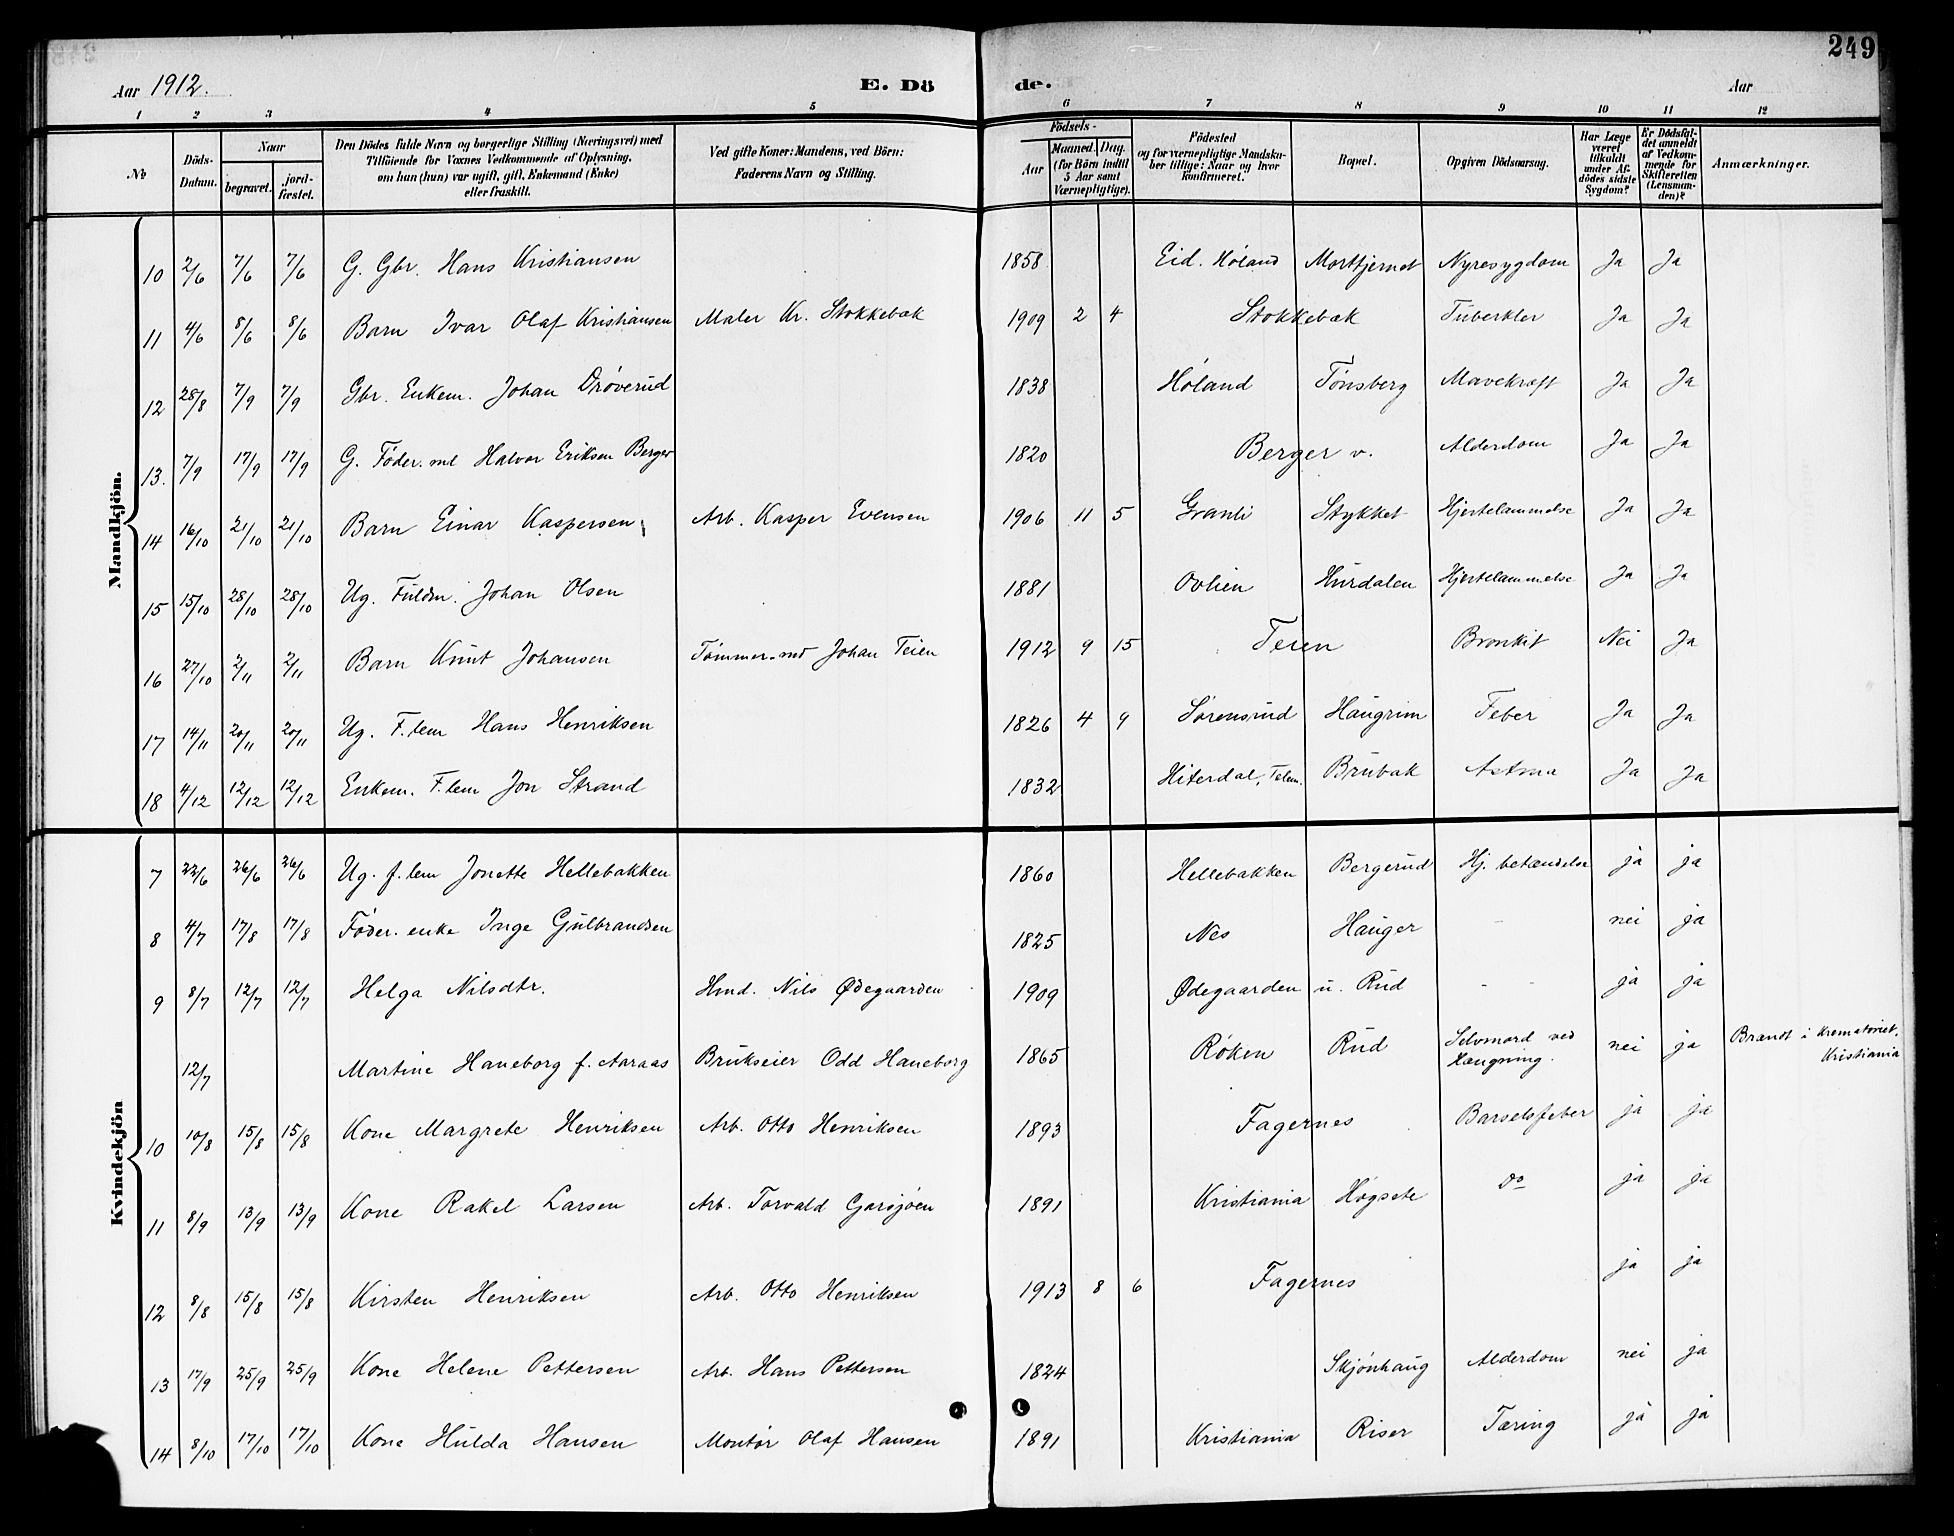 249
Aar 1912. E. Dö de. Aar
1 2 3 4 5 6 7 8 9 10 11 12
No
Döds-Datum.
Naar
begravet.
jord-fæstet.
Den Dödes fulde Navn og borgerlige Stilling (Næringsvei) med
Tilföiende for Voxnes Vedkommende af Oplysning,
om han (hun) var ugift, gift, Enkemand (Enke)
eller fraskilt.
Ved gifte Koner: Mandens, ved Börn:
Faderens Navn og Stilling.
Födsels-
Aar
Maaned. Dag.
(for Börn indtil
5 Aar samt
Værnepligtige).
Födested
og for værnepligtige Mandska-
ber tillige: Naar og hvor
konfirmeret.
Bopæl.
Opgiven Dödsaarsag.
Har Læge
været
tilkaldt
under Af-
dödes sidste
Sygdom?
Er Dödsfal-
det anmeldt
af Vedkom-
mende for
Skifteretten
(Lensman-
den)?
Anmærkninger.
Mandkjön.
10 2/6 7/6 7/6 G. Gbr. Hans Kristiansen 1858 Eid. Høland Morttjernet Nyresygdom Ja Ja
11 4/6 8/6 8/6 Barn Ivar Olaf Kristiansen Maler Kr. Stokkebæk 1909 2 4 Stokkebæk Tuberkler Ja Ja
12 28/8 7/9 7/9 Gbr. Enkem. Johan Drøverud 1838 Høland Tønsberg Mavekræft Ja Ja
13. 7/9 17/9 17/9 G. Føder.md Halvor Eriksen Berger 1820 Berger v. Alderdom Ja Ja
14 16/10 21/10 21/10 Barn Einar Kaspersen Arb. Kasper Evensen 1906 11 5 Granli Stykket Hjertelammelse Ja Ja
15 15/10 28/10 28/10 Ug. Fuldm. Johan Olsen 1881 Ovlien Hurdalen Hjertelammelse Ja Ja
16 27/10 2/11 2/11 Barn Knut Johansen Tømmer.md Johan Teien 1912 9 15 Teien Bronkit Nei Ja
17 14/11 20/11 20/11 Ug. F.lem Hans Henriksen 1826 4 9 Sørensrud Haugrim Feber Ja Ja
18 4/12 12/12 12/12 Enkem. F.lem Jon Strand 1832 Hiterdal, Telem. Brubak Astma Ja Ja
Kvindekjön
7 22/6 26/6 26/6 Ug. f.lem Jonette Hellebakken 1860 Hellebakken Bergerud Hj. betændelse ja ja
8 4/7 17/8 17/8 Føder.enke Inge Gulbrandsen 1825 Nes Hauger - nei ja
9 8/7 12/7 12/7 Helga Nilsdtr. Hmd. Nils Ødegaarden 1909 Ødegaarden u. Rud - - ja ja
12/7 Martine Haneborg f. Aaraas Brukseier Odd Haneborg 1865 Røken Rud Selvmord ved Hængning. nei ja Brændt i Krematoriet, Kristiania
10 10/8 15/8 15/8 Kone Margrete Henriksen Arb. Otto Henriksen 1893 Fagernes Barselsfeber ja ja
11 8/9 13/9 13/9 Kone Rakel Larsen Arb. Torvald Garsjøen 1891 Kristiania Høgsete Do ja ja
12 8/8 15/8 15/8 Kirsten Henriksen Arb. Otto Henriksen 1913 8 6 Fagernes ja ja
13 17/9 25/9 25/9 Kone Helene Pettersen Arb. Hans Pettersen 1824 Skjønhaug Alderdom nei ja
14 8/10 17/10 17/10 Kone Hulda Hansen Montør Olaf Hansen 1891 Kristiania Riser Tæring ja ja